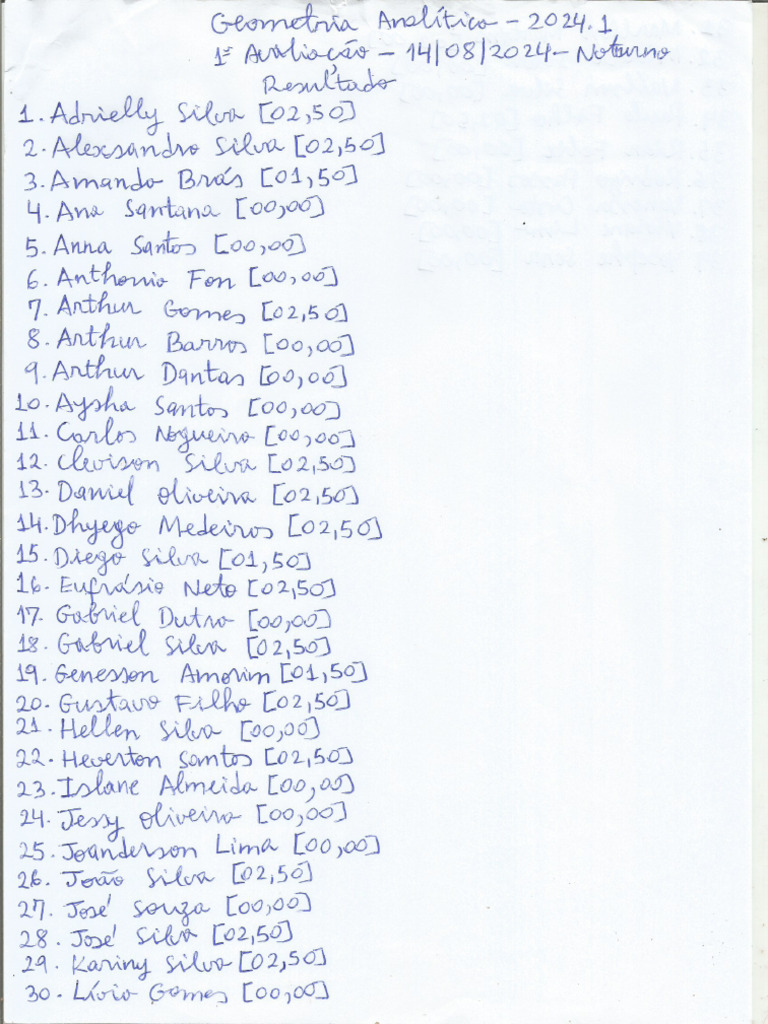 Geometria Analítica - 2024.1
1ª Avaliação - 14/08/2024 - Noturno
Resultado
1. Adrielly Silva [02,50]
2. Alexsandro Silva [02,50]
3. Amanda Brás [01,50]
4. Ana Santana [00,00]
5. Anna Santos [00,00]
6. Anthonio Fon [00,00]
7. Arthur Gomes [02,50]
8. Arthur Barros [00,00]
9. Arthur Dantas [00,00]
10. Aysha Santos [00,00]
11. Carlos Nogueira [00,00]
12. Clevison Silva [02,50]
13. Daniel Oliveira [02,50]
14. Dhyego Medeiros [02,50]
15. Diego Silva [01,50]
16. Eufrásio Neto [02,50]
17. Gabriel Dutra [00,00]
18. Gabriel Silva [02,50]
19. Genesson Amorim [01,50]
20. Gustavo Filho [02,50]
21. Hellen Silva [00,00]
22. Heverton Santos [02,50]
23. Islane Almeida [00,00]
24. Jessy Oliveira [00,00]
25. Joanderson Lima [00,00]
26. João Silva [02,50]
27. José Souza [00,00]
28. José Silva [02,50]
29. Kariny Silva [02,50]
30. Lívia Gomes [00,00]